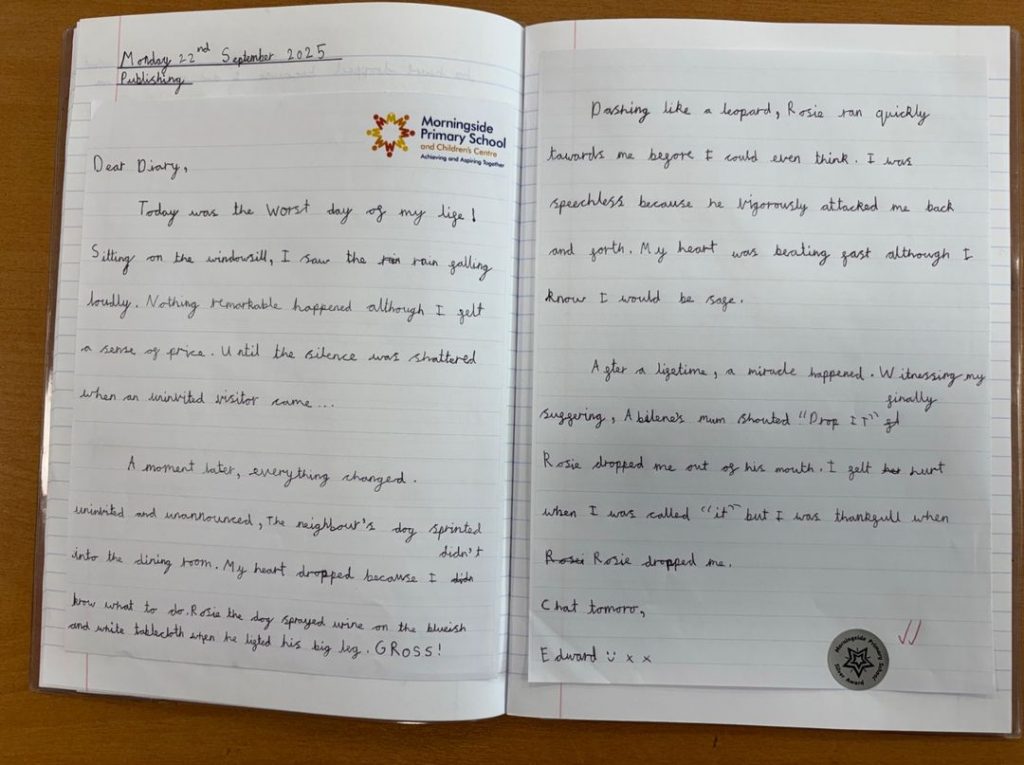 Monday 22nd September 2025
Publishing
Morningside
Primary School
and Children's Centre
Achieving and Aspiring Together
Dear Diary,
Today was the worst day of my life!
Sitting on the windowsill, I saw the rain falling
loudly. Nothing remarkable happened although I felt
a sense of price. Until the silence was shattered
when an uninvited visitor came...
A moment later, everything changed.
uninvited and unannounced, The neighbour's dog sprinted
didn't
into the dining room. My heart dropped because I didn
know what to do. Rosie the dog sprayed urine on the blueish
and white tablecloth when he lifted his big leg. GROSS!
Dashing like a leopard, Rosie ran quickly
towards me before I could even think. I was
speechless because he vigorously attacked me back
and forth. My heart was beating fast although I
know I would be safe.
After a lifetime, a miracle happened. Witnessing my
finally
suffering, Abilene's mum shouted "Drop IT"
Rosie dropped me out of his mouth. I felt hurt
when I was called "it" but I was thankfull when
Rosei Rosie dropped me.
Chat tomoro,
Edward x x
Morningside Primary School
Silver Award